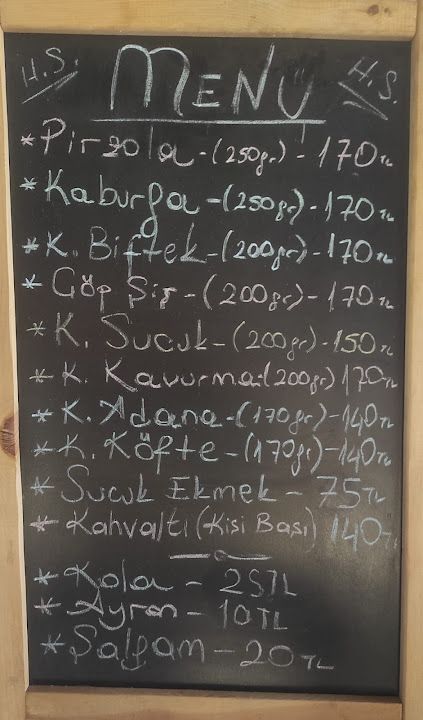 H.S. MENU H.S.
* Pirzola - (250gr) - 170 TL
* Kaburga - (250gr) - 170 TL
* K. Biftek - (200gr) - 170 TL
* Göp Şiş - (200gr) - 170 TL
* K. Sucuk - (200gr) - 150 TL
* K. Kavurma - (200gr) 170 TL
* K. Adana - (170gr) - 140 TL
* K. Köfte - (170gr) - 140 TL
* Sucuk Ekmek - 75 TL
* Kahvaltı (Kisi Bası) 140 TL
* Kola - 25 TL
* Ayran - 10 TL
* Şalgam - 20 TL